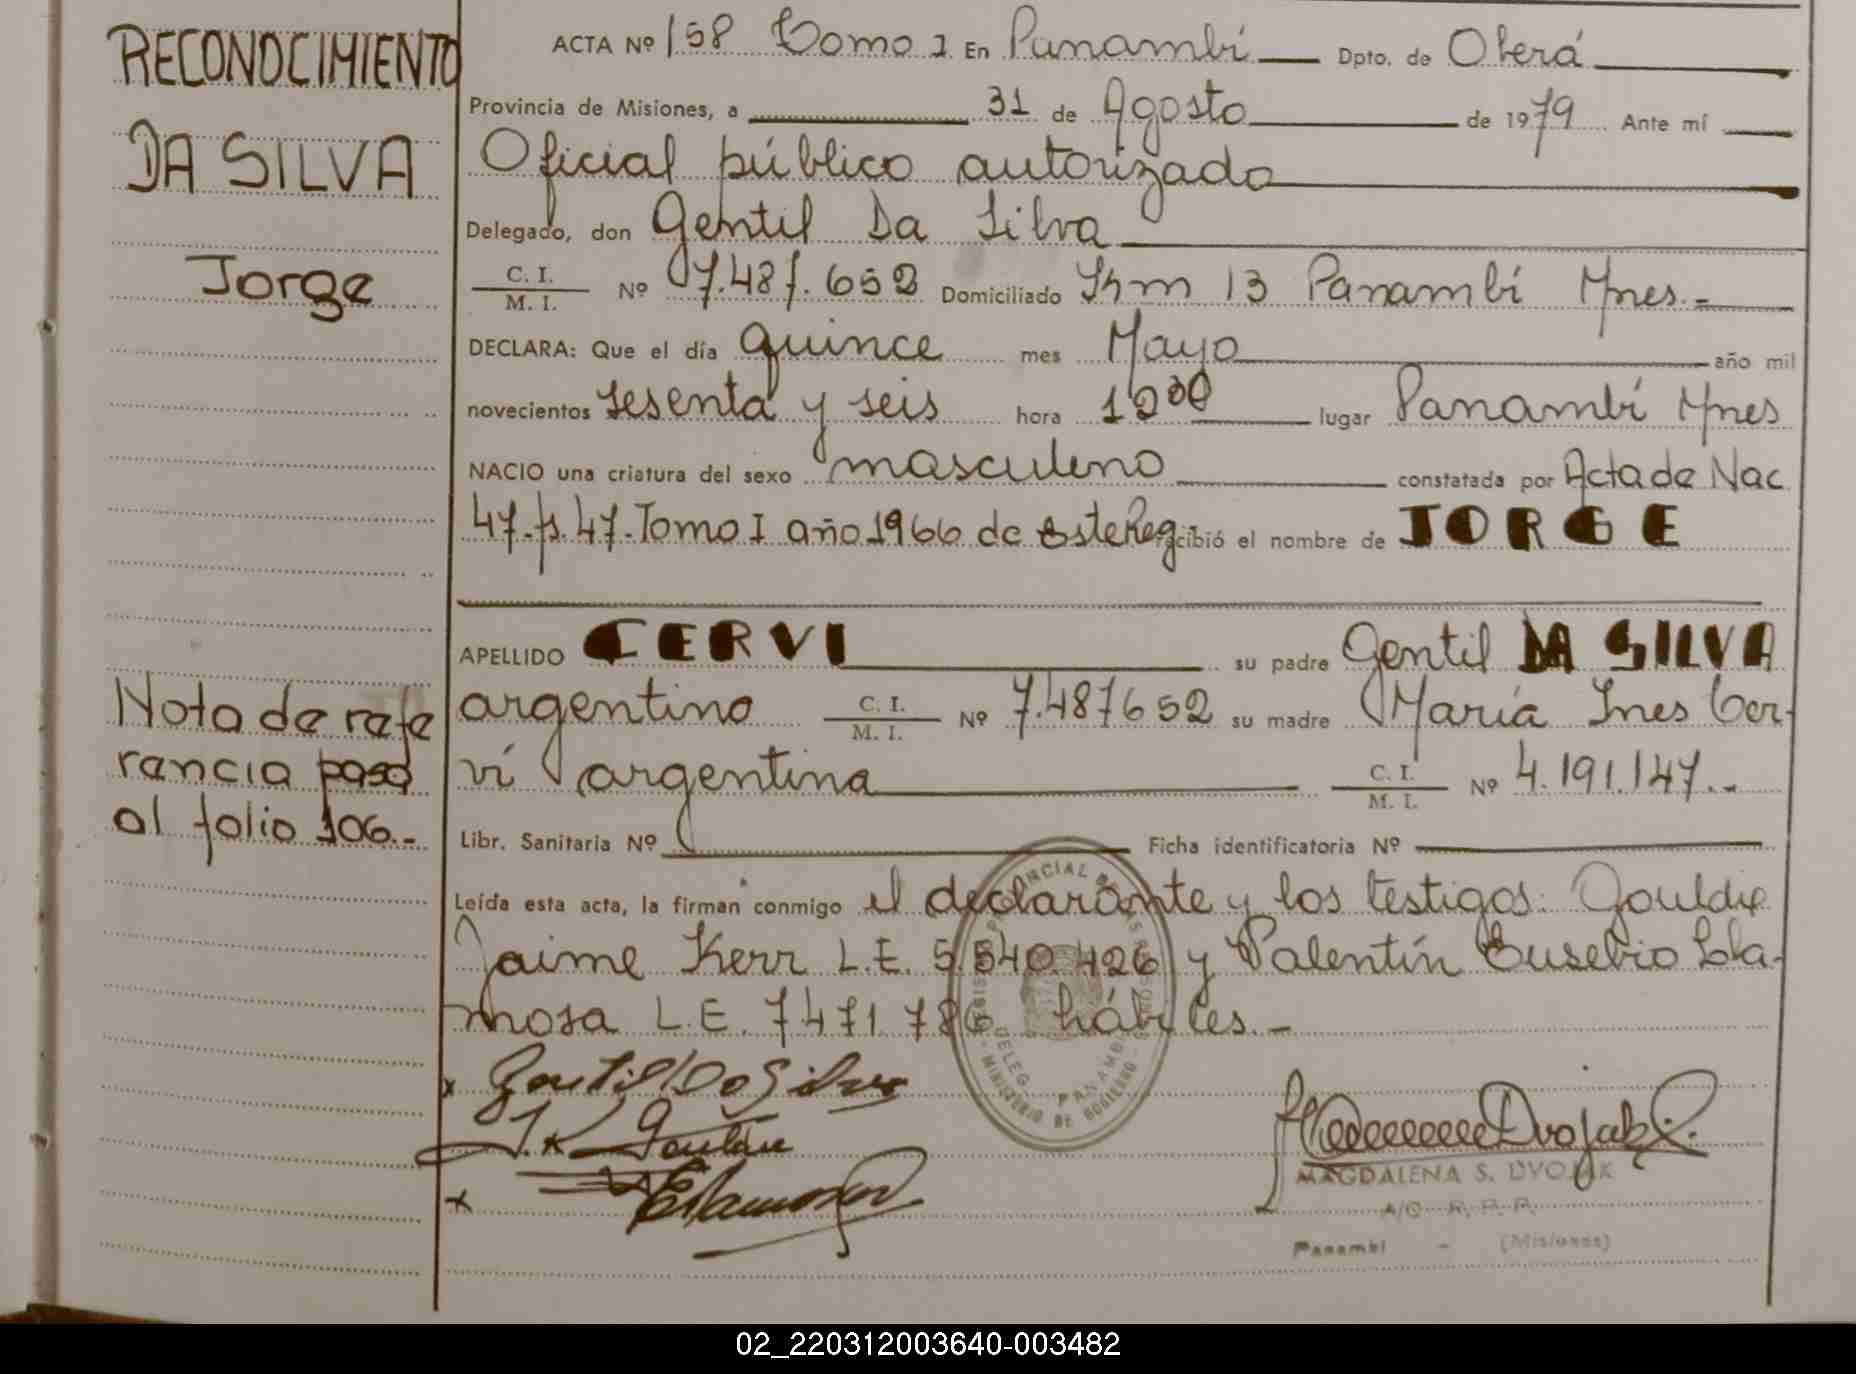 RECONOCIMIENTO
DA SILVA
Jorge
Nota de refe
rencia paso
al folio 106.-
ACTA Nº 158 Tomo I En Panambí Dpto. de Oberá
Provincia de Misiones, a 31 de Agosto de 1979 Ante mí
Oficial público autorizado
Delegado, don Gentil Da Silva
C. I.
M. I. Nº 7.487.652 Domiciliado Km 13 Panambí Mnes.-
DECLARA: Que el día quince mes Mayo año mil
novecientos sesenta y seis hora lugar Panambí Mnes
NACIO una criatura del sexo masculino constatada por Acta de Nac
47-f. 47-Tomo I año 1966 de este Reg recibió el nombre de JORGE
APELLIDO CERVI su padre Gentil DA SILVA
argentino C. I.
M. I. Nº 7.487652 su madre María Ines Cer-
vi argentina C. I.
M. I. Nº 4.191.147.-
Libr. Sanitaria Nº Ficha identificatoria Nº
Leída esta acta, la firman conmigo el declarante y los testigos: Gouldie
Jaime Kerr L.E. 5.540.426 y Valentín Eusebio Lla-
mosa L.E. 7471.786 hábiles.-
MINISTERIO DE GOBIERNO
DELEG. PANAMBI
x Gentil Da Silva
J. K Gouldie
x
Magdalena Dvojak
MAGDALENA S. DVOJAK
A/C R. P. P.
Panambí - (Misiones)
02_220312003640-003482